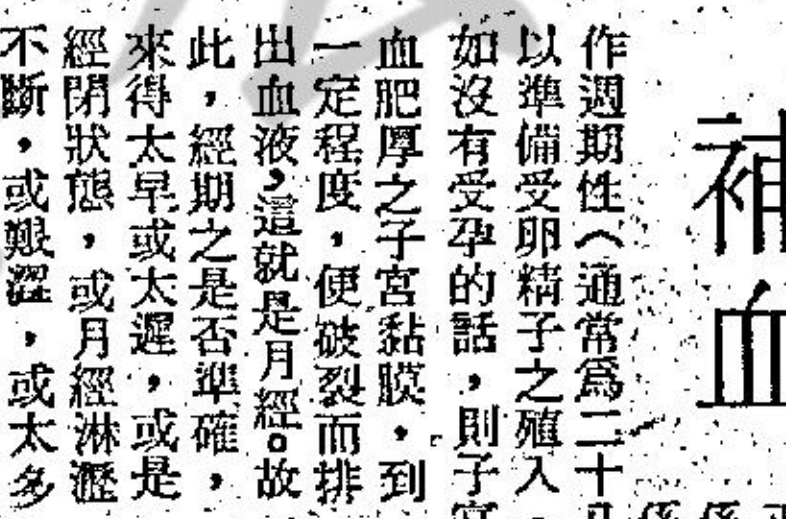 補血
作週期性（通常爲二十
以準備受卵精子之殖入，
如沒有受孕的話，則子宮
血肥厚之子宮黏膜，到
一定程度，便破裂而排
出血液，這就是月經。故
此，經期之是否準確，
來得太早或太遲，或是
經閉狀態，或月經淋瀝
不斷，或艱澀，或太多